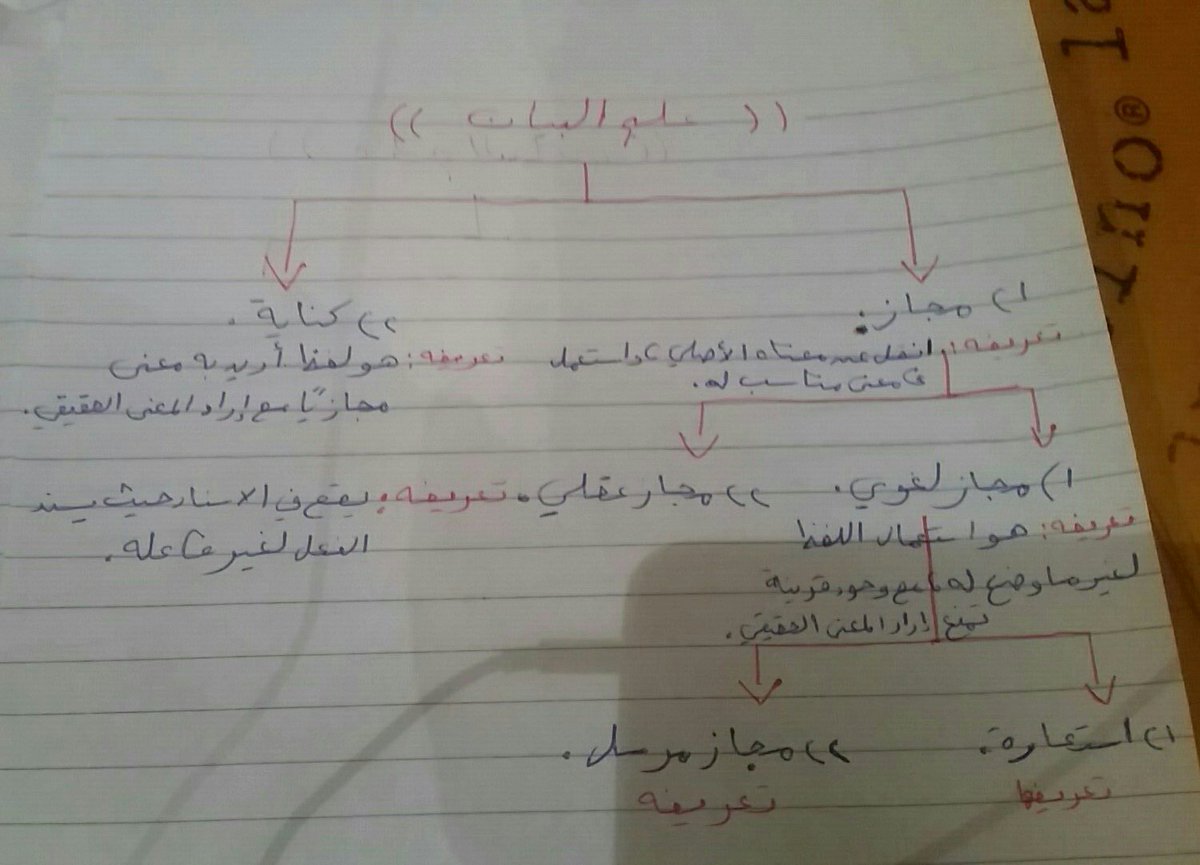 (( علم البيان ))
١) مجاز.
تعريفه: انتقل عن معناه الأصلي واستعمل
في معنى مناسب له.
٢) كناية.
تعريفه: هو لفظ أريد به معنى
مجازيًا مع إراد المعنى الحقيقي.
١) مجاز لغوي.
تعريفه: هو استعمال اللفظ
لغير ما وضع له مع وجود قرينة
تمنع إراد المعنى الحقيقي.
٢) مجاز عقلي. تعريفه: يقع في الاسناد حيث يسند
الفعل لغير فاعله.
١) استعارة.
تعريفها
٢) مجاز مرسل.
تعريفه